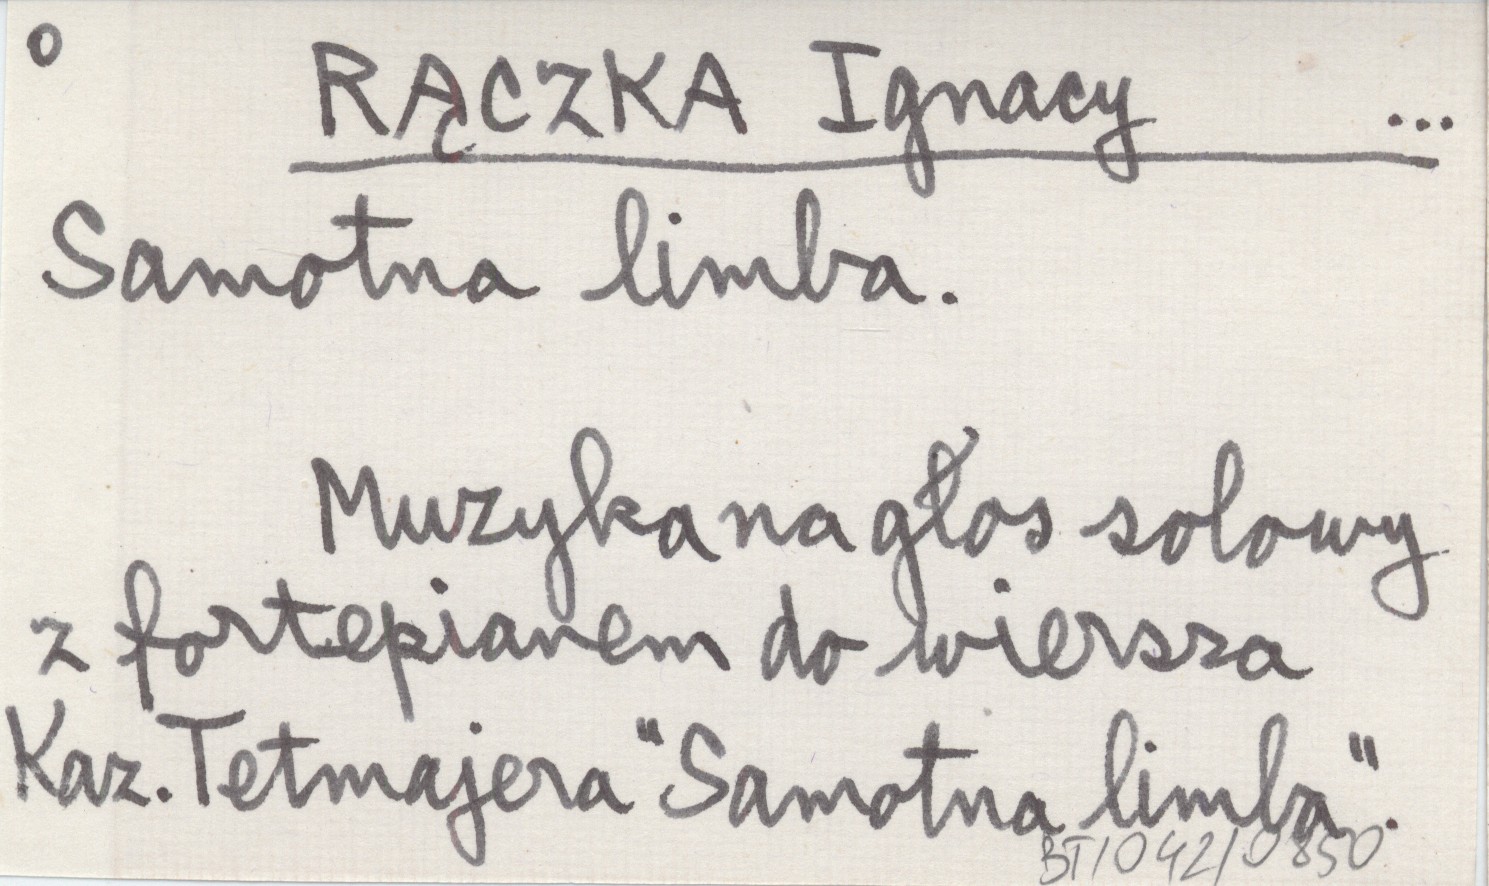 o RĄCZKA Ignacy ...
Samotna limba.
Muzyka na głos solowy
z fortepianem do wiersza
Kaz. Tetmajera "Samotna limba".
BT/042/0850